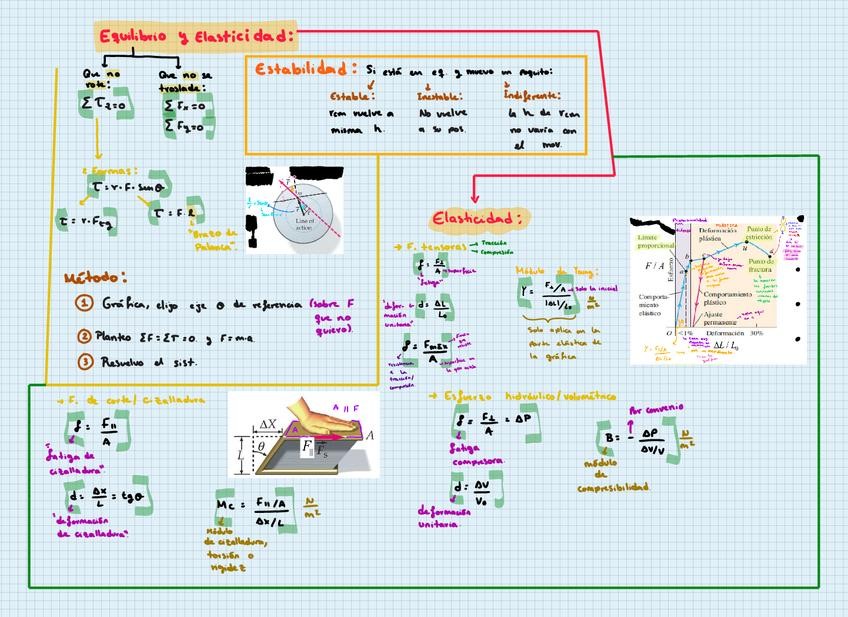 Equilibrio y Elasticidad:
Que no
rote:
Στz=0
Que no se
traslade:
ΣFx=0
ΣFy=0
Estabilidad: Si está en eq. y muevo un poquito:
Estable:
rcm vuelve a
misma h.
Inestable:
No vuelve
a su pos.
Indiferente:
la h de rcm
no varía con
el mov.
2 formas:
τ=r·F·senθ
τ=r·Ftg
τ=F·l
"Brazo de
Palanca".
Line of
action
Método:
1 Gráfica, elijo eje θ de referencia (sobre F
que no
quiero).
2 Planteo ΣF=Στ=0. y F=m·a
3 Resuelvo el sist.
Elasticidad:
→ F. tensoras
Tracción
Compresión
f=F⊥/A
superficie
"fatiga"
d=ΔL/L₀
"deformación
unitaria"
f=Fmáx/A
Módulo de Young:
Y=F⊥/A / |ΔL|/L₀
Solo la inicial
N/m²
Solo aplica en la
parte elástica de
la gráfica
Límite
proporcional
Deformación
plástica
Punto de
estricción
Punto de
fractura
F / A
Esfuerzo
a
b
c
u
Comporta-
miento
elástico
Comportamiento
plástico
Ajuste
permanente
O
<1%
Deformación
30%
ΔL / L₀
→ F. de corte/ cizalladura
f=F∥/A
"fatiga de
cizalladura"
d=Δx/L=tgθ
"deformación
de cizalladura".
ΔX
L
θ
A
F
Fs
A
A ∥ F
Mc=F∥/A / Δx/L
N/m²
Módulo
de cizalladura,
torsión o
rigidez
→ Esfuerzo hidráulico/volumétrico
f=F⊥/A=ΔP
fatiga
compresora
d=ΔV/V₀
deformación
unitaria.
Por convenio
B=-ΔP / ΔV/V
N/m²
módulo
de
compresibilidad.